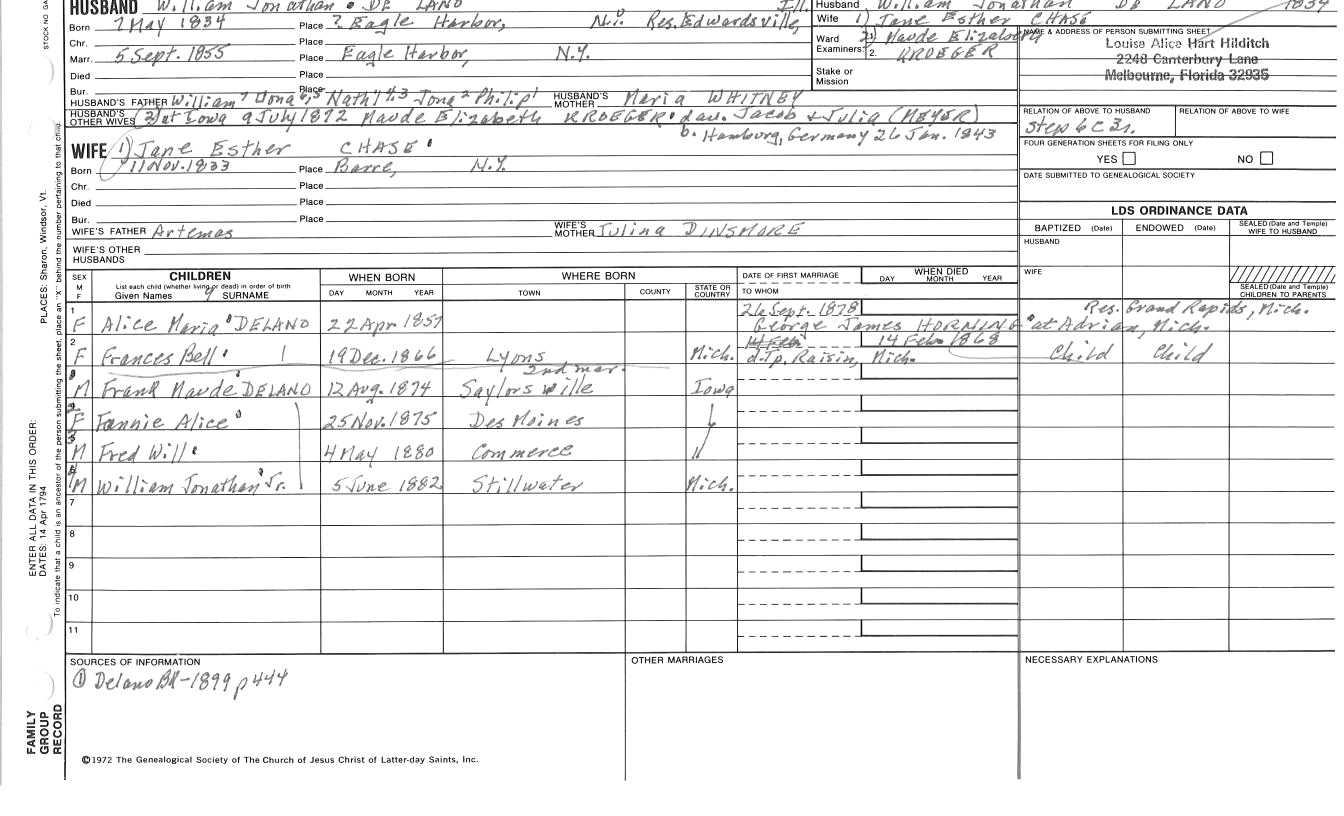 HUSBAND William Jonathan DE LAND Ill.
Born 7 May 1834 Place ? Eagle Harbor, N.Y. Res. Edwardsville,
Chr. Place
Marr. 5 Sept. 1855 Place Eagle Harbor, N.Y.
Died Place
Bur. Place
HUSBAND'S FATHER William7 Jona6,5 Nath'l4,3 Jona2 Philip1 HUSBAND'S MOTHER Maria WHITNEY
HUSBAND'S OTHER WIVES 2) at Iowa 9 July 1872 Maude Elizabeth KROEGER dau. Jacob & Julia (MEYER)
b. Hamburg, Germany 26 Jan. 1843
WIFE 1) Jane Esther CHASE
Born 11 Nov. 1833 Place Barre, N.Y.
Chr. Place
Died Place
Bur. Place
WIFE'S FATHER Artemas WIFE'S MOTHER Julina DINSMORE
WIFE'S OTHER HUSBANDS
Husband William Jonathan DE LAND 1834
Wife 1) Jane Esther CHASE
2) Maude Elizabeth
KROEGER
Ward
Examiners: 2.
Stake or
Mission
NAME & ADDRESS OF PERSON SUBMITTING SHEET
Louise Alice Hart Hilditch
2248 Canterbury Lane
Melbourne, Florida 32935
RELATION OF ABOVE TO HUSBAND RELATION OF ABOVE TO WIFE
Step 6C3r.
FOUR GENERATION SHEETS FOR FILING ONLY
YES NO
DATE SUBMITTED TO GENEALOGICAL SOCIETY
LDS ORDINANCE DATA
BAPTIZED (Date) ENDOWED (Date) SEALED (Date and Temple) WIFE TO HUSBAND
HUSBAND
WIFE
SEALED (Date and Temple) CHILDREN TO PARENTS
SEX M F CHILDREN WHEN BORN WHERE BORN DATE OF FIRST MARRIAGE WHEN DIED
List each child (whether living or dead) in order of birth
Given Names 9 SURNAME DAY MONTH YEAR TOWN COUNTY STATE OR COUNTRY TO WHOM DAY MONTH YEAR
1 F Alice Maria DELAND 22 Apr. 1857 26 Sept. 1878 Res. Grand Rapids, Mich.
George James HORNING at Adrian, Mich.
2 F Frances Bell 19 Dec. 1866 Lyons Mich. 14 Feb 14 Feb. 1868 Child Child
d. Tp. Raisin, Mich.
2nd mar.
M Frank Maude DELAND 12 Aug. 1874 Saylorsville Iowa
F Fannie Alice 25 Nov. 1875 Des Moines
M Fred Will 4 May 1880 Commerce "
M William Jonathan Jr. 5 June 1882 Stillwater Mich.
7
8
9
10
11
SOURCES OF INFORMATION OTHER MARRIAGES NECESSARY EXPLANATIONS
① Delano BK-1899 p444
©1972 The Genealogical Society of The Church of Jesus Christ of Latter-day Saints, Inc.
STOCK NO GA
PLACES: Sharon, Windsor, Vt.
ENTER ALL DATA IN THIS ORDER:
DATES: 14 Apr 1794
To indicate that a child is an ancestor of the person submitting the sheet, place an "X" behind the number pertaining to that child.
FAMILY
GROUP
RECORD